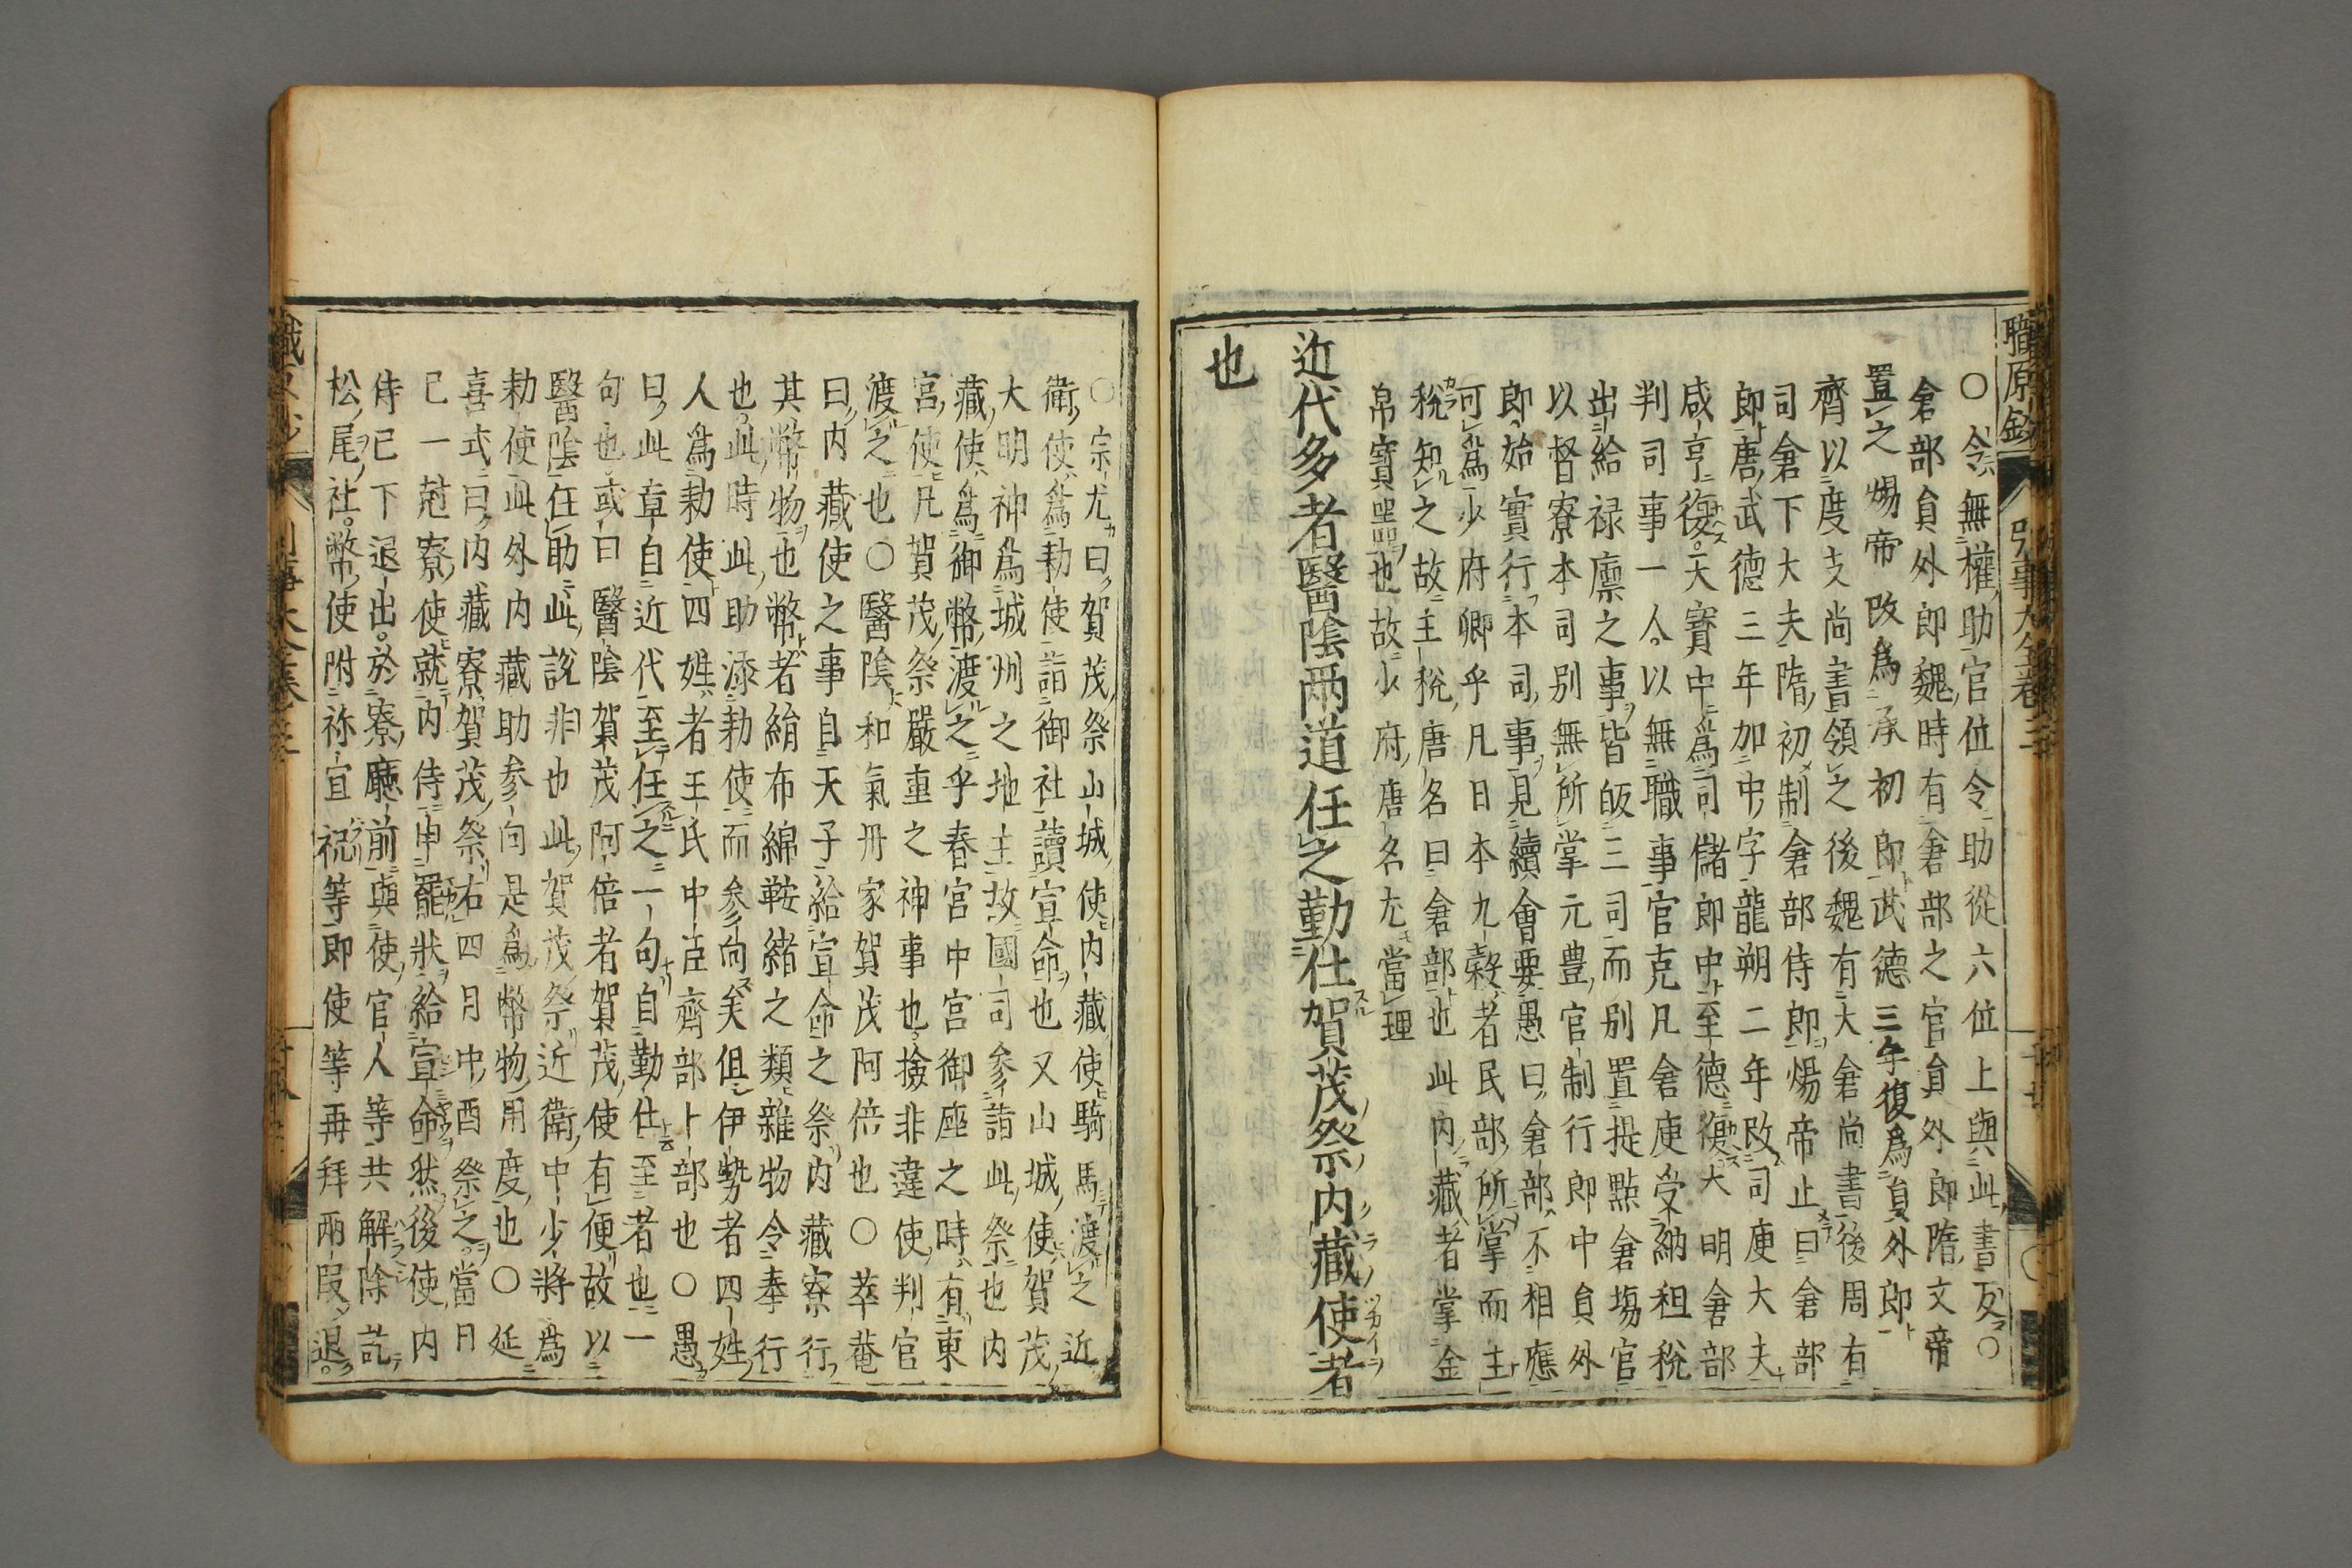 職原鈔 引事大全卷三
○令無權助官位令助從六位上與此書反○
倉部員外郎魏時有倉部之官員外郎隋文帝
置之煬帝改爲承初郎武德三年復爲員外郎
齊以度支尚書領之後魏有大倉尚書後周有
司倉下大夫隋初制倉部侍郎煬帝止曰倉部
郎唐武德三年加中字龍朔二年改司庾大夫
咸亨復天寶中爲司儲郎中至德復大明倉部
判司事一人以無職事官克凡倉庾受納租稅
出給禄廪之事皆皈三司而别置提點倉場官
以督寮本司别無所掌元豊官制行郎中員外
郎始實行本司事見續會要愚曰倉部不相應
可爲少府卿乎凡日本九穀者民部所掌而主
稅知之故主稅唐名曰倉部也此内藏者掌金
帛寶器也故少府唐名尤當理
近代多者醫陰兩道任之勤仕賀茂祭内藏使者
也
○宗尤曰賀茂祭山城使内藏使騎馬渡之近
衛使爲勅使詣御社讀宣命也又山城使賀茂
大明神爲城州之地主故國司參詣此祭也内
藏使爲御幣渡之乎春宮中宮御座之時有東
宮使凡賀茂祭嚴重之神事也撿非違使判官
渡之也○醫陰和氣丹家賀茂阿倍也○萃菴
曰内藏使之事自天子給宣命之祭内藏寮行
其幣物也幣者絹布綿鞍緒之類雜物令奉行
也此時此助添勅使而参向矣但伊勢者四姓
人爲勅使四姓者王氏中臣齊部卜部也○愚
曰此章自近代至任之一句自勤仕至者也一
句也或曰醫陰賀茂阿倍者賀茂使有便故以
醫陰任助此說非也此賀茂祭近衛中少將爲
勅使此外内藏助参向是爲幣物用度也○延
喜式曰内藏寮賀茂祭右四月中酉祭之當日
已一尅寮使就内侍申罷狀給宣命然後使内
侍已下退出於寮廳前與使官人等共解除訖
松尾社幣使附祢宜祝等即使等再拜兩叚退